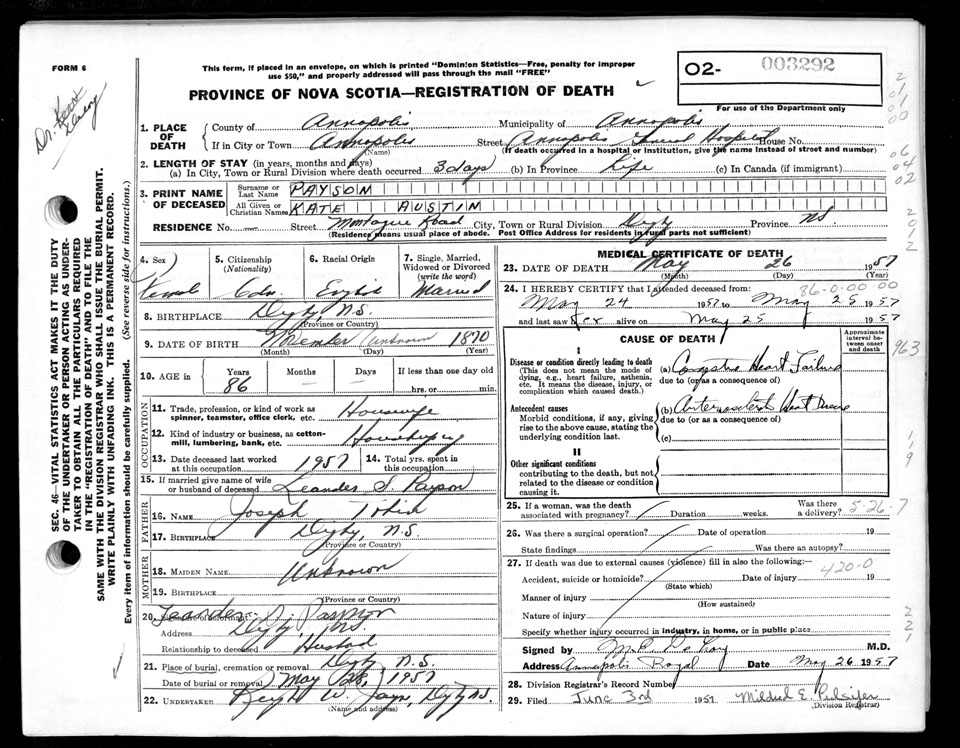 FORM 6
This form, if placed in an envelope, on which is printed "Dominion Statistics—Free, penalty for improper
use $50," and properly addressed will pass through the mail "FREE"
PROVINCE OF NOVA SCOTIA—REGISTRATION OF DEATH
O2- 003292
For use of the Department only
Dr. Kerr
1. PLACE OF DEATH
County of Annapolis Municipality of Annapolis
If in City or Town Annapolis Street Annapolis General Hospital House No.
(Name) (If death occurred in a hospital or institution, give the name instead of street and number)
2. LENGTH OF STAY (in years, months and days)
(a) In City, Town or Rural Division where death occurred 3 days (b) In Province Life (c) In Canada (if immigrant)
3. PRINT NAME OF DECEASED
Surname or Last Name PAYSON
All Given or Christian Names KATE AUSTIN
RESIDENCE No. — Street Montague Road City, Town or Rural Division Digby Province N.S.
(Residence means usual place of abode. Post Office Address for residents in rural parts not sufficient)
4. Sex Female
5. Citizenship (Nationality) Cdn.
6. Racial Origin English
7. Single, Married, Widowed or Divorced (write the word) Married
8. BIRTHPLACE Digby, N.S.
(Province or Country)
9. DATE OF BIRTH November Unknown 1870
(Month) (Day) (Year)
10. AGE IN Years 86 Months — Days — If less than one day old hrs. or min.
OCCUPATION
11. Trade, profession, or kind of work as spinner, teamster, office clerk, etc. Housewife
12. Kind of industry or business, as cotton-mill, lumbering, bank, etc. Housekeeping
13. Date deceased last worked at this occupation 1957 14. Total yrs. spent in this occupation
15. If married give name of wife or husband of deceased Leander S. Payson
FATHER
16. NAME Joseph Tobin
17. BIRTHPLACE Digby, N.S.
(Province or Country)
MOTHER
18. MAIDEN NAME Unknown
19. BIRTHPLACE
(Province or Country)
20. Leander Payson
Address Digby, N.S.
Relationship to deceased Husband
21. Place of burial, cremation or removal Digby, N.S.
Date of burial or removal May 28, 1957
22. UNDERTAKER W. Jayne, Digby N.S.
(Name and address)
SEC. 46—VITAL STATISTICS ACT MAKES IT THE DUTY
OF THE UNDERTAKER OR PERSON ACTING AS UNDER-
TAKER TO OBTAIN ALL THE PARTICULARS REQUIRED
IN THE "REGISTRATION OF DEATH" AND TO FILE THE
SAME WITH THE DIVISION REGISTRAR WHO SHALL ISSUE THE BURIAL PERMIT.
WRITE PLAINLY WITH UNFADING INK. THIS IS A PERMANENT RECORD.
Every item of information should be carefully supplied. (See reverse side for instructions.)
MEDICAL CERTIFICATE OF DEATH
23. DATE OF DEATH May 26 1957
(Month) (Day) (Year)
24. I HEREBY CERTIFY that I attended deceased from: 86-0-00-00
May 24 1957 to May 25 1957
and last saw her alive on May 25 1957
CAUSE OF DEATH
Approximate interval between onset and death
I
Disease or condition directly leading to death
(This does not mean the mode of dying, e.g., heart failure, asthenia, etc. It means the disease, injury, or complication which caused death.)
(a) Congestive Heart Failure
due to (or as a consequence of)
Antecedent causes
Morbid conditions, if any, giving rise to the above cause, stating the underlying condition last.
(b) Arteriosclerotic Heart Disease
due to (or as a consequence of)
(c)
II
Other significant conditions
contributing to the death, but not related to the disease or condition causing it.
963
25. If a woman, was the death associated with pregnancy? Duration weeks. Was there a delivery? 5-26-7
26. Was there a surgical operation? Date of operation 19
State findings Was there an autopsy?
27. If death was due to external causes (violence) fill in also the following:—
420-0
Accident, suicide or homicide? Date of injury 19
(State which)
Manner of injury
(How sustained)
Nature of injury
Specify whether injury occurred in industry, in home, or in public place
Signed by M.D.
Address Annapolis Royal Date May 26 1957
28. Division Registrar's Record Number
29. Filed June 3rd 1957 Mildred E. Pulsifer
(Division Registrar)